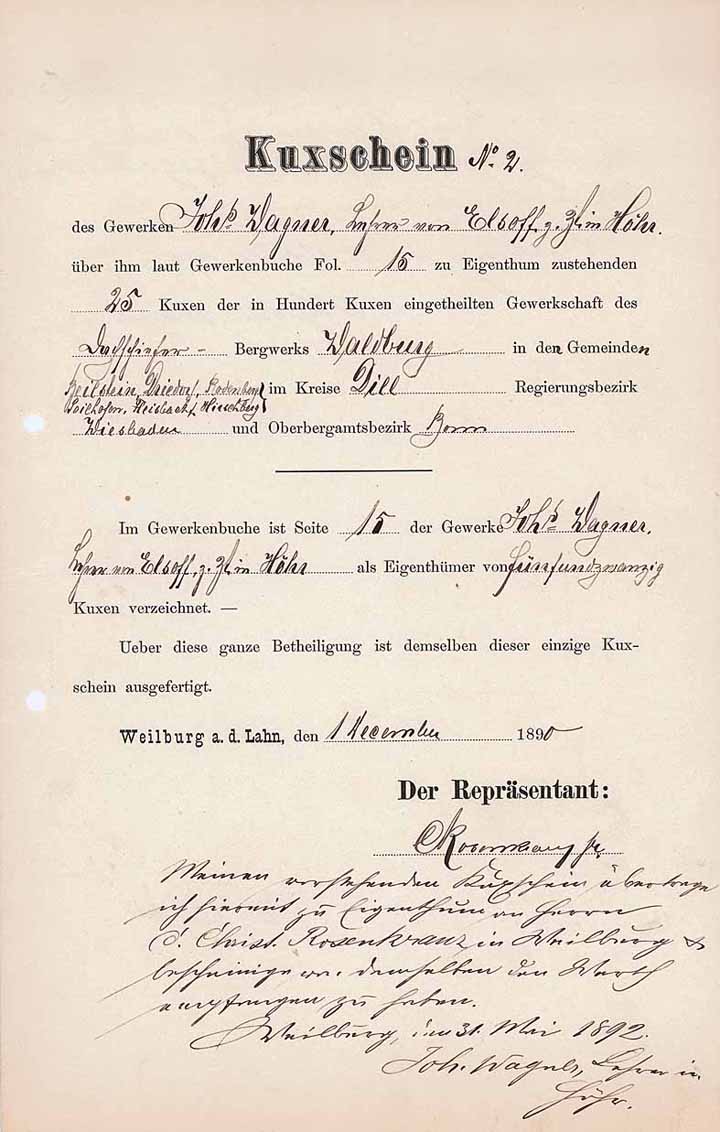 Kuxschein No. 2.
des Gewerken Johs. Wagner, Lehrer von Elsoff, z. Zt. in Höhr.
über ihm laut Gewerkenbuche Fol. 15 zu Eigenthum zustehenden
25 Kuxen der in Hundert Kuxen eingetheilten Gewerkschaft des
Dachschiefer- Bergwerks Waldburg in den Gemeinden
Beilstein, Driedorf, Rodenberg im Kreise Dill Regierungsbezirk
Haiern, Heisterberg, Hirschberg
Wiesbaden und Oberbergamtsbezirk Bonn
Im Gewerkenbuche ist Seite 15 der Gewerke Johs. Wagner,
Lehrer von Elsoff, z. Zt. in Höhr als Eigenthümer von fünfundzwanzig
Kuxen verzeichnet. —
Ueber diese ganze Betheiligung ist demselben dieser einzige Kux-
schein ausgefertigt.
Weilburg a. d. Lahn, den 1 December 1890
Der Repräsentant:
Meinen vorstehenden Kuxschein übertrage
ich hiermit zu Eigenthum an Herrn
Christ. Rosenkranz in Weilburg &
bescheinige von demselben den Werth
empfangen zu haben.
Weilburg, den 31. Mai 1892.
Joh. Wagner, Lehrer in
Höhr.